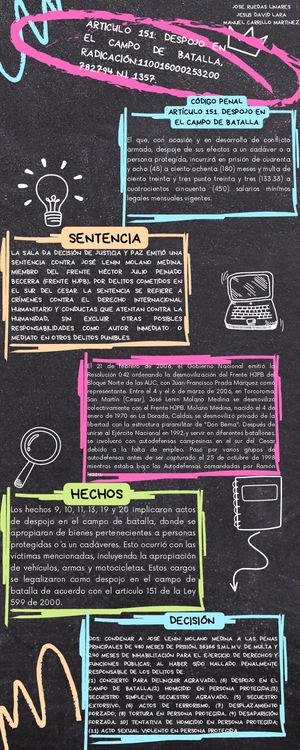 JOSE RUEDAS LINARES
JESUS DAVID LARA
MANUEL CARRILLO MARTINEZ
ARTICULO 151: DESPOJO EN
EL CAMPO DE BATALLA,
RADICACIÓN:110016000253200
782794 N.I 1357.
CÓDIGO PENAL
ARTÍCULO 151. DESPOJO EN
EL CAMPO DE BATALLA
El que, con ocasión y en desarrollo de conflicto
armado, despoje de sus efectos a un cadáver o a
persona protegida, incurrirá en prisión de cuarenta
y ocho (48) a ciento ochenta (180) meses y multa de
ciento treinta y tres punto treinta y tres (133.33) a
cuatrocientos cincuenta (450) salarios mínimos
legales mensuales vigentes.
SENTENCIA
LA SALA DA DECISIÓN DE JUSTICIA Y PAZ EMITIÓ UNA
SENTENCIA CONTRA JOSÉ LENIN MOLANO MEDINA,
MIEMBRO DEL FRENTE HÉCTOR JULIO PEINADO
BECERRA (FRENTE HJPB), POR DELITOS COMETIDOS EN
EL SUR DEL CESAR. LA SENTENCIA SE REFIERE A
CRÍMENES CONTRA EL DERECHO INTERNACIONAL
HUMANITARIO Y CONDUCTAS QUE ATENTAN CONTRA LA
HUMANIDAD, SIN EXCLUIR OTRAS POSIBLES
RESPONSABILIDADES COMO AUTOR INMEDIATO O
MEDIATO EN OTROS DELITOS PUNIBLES
El 21 de febrero de 2006, el Gobierno Nacional emitió la
Resolución 042 ordenando la desmovilización del Frente HJPB del
Bloque Norte de las AUC, con Juan Francisco Prada Márquez como
representante. Entre el 4 y el 6 de marzo de 2006, en Torcoroma,
San Martín (Cesar), José Lenin Molano Medina se desmovilizó
colectivamente con el Frente HJPB. Molano Medina, nacido el 4 de
enero de 1970 en La Dorada, Caldas, se desmovilizó privado de la
libertad con la estructura paramilitar de "Don Berna". Después de
unirse al Ejército Nacional en 1992 y servir en diferentes batallones,
se involucró con autodefensas campesinas en el sur del Cesar
debido a la falta de empleo. Pasó por varios grupos de
autodefensas antes de ser capturado el 25 de octubre de 1998
mientras estaba bajo las Autodefensas comandadas por Ramón
HECHOS
Los hechos 9, 10, 11, 13, 19 y 20 implicaron actos
de despojo en el campo de batalla, donde se
apropiaron de bienes pertenecientes a personas
protegidas o a un cadáveres. Esto ocurrió con las
víctimas mencionadas, incluyendo la apropiación
de vehículos, armas y motocicletas. Estos cargos
se legalizaron como despojo en el campo de
batalla de acuerdo con el artículo 151 de la Ley
599 de 2000.
DECISIÓN
DOS: CONDENAR A JOSÉ LENIN MOLANO MEDINA A LAS PENAS
PRINCIPALES DE 480 MESES DE PRISIÓN, S.M.L.M.V. DE MULTA Y
240 MESES DE INHABILITACIÓN PARA EL EJERCICIO DE DERECHOS Y
FUNCIONES PÚBLICAS; AL HABER SIDO HALLADO PENALMENTE
RESPONSABLE DE LOS DELITOS DE:
(1) CONCIERTO PARA DELINQUIR AGRAVADO, (6) DESPOJO EN EL
CAMPO DE BATALLA,(2) HOMICIDIO EN PERSONA PROTEGIDA,(3)
SECUESTRO SIMPLE,(4) SECUESTRO AGRAVADO, (5) SECUESTRO
EXTORSIVO, (6) ACTOS DE TERRORISMO, (7) DESPLAZAMIENTO
FORZADO; (8) TORTURA EN PERSONA PROTEGIDA, (9) DESAPARICIÓN
FORZADA, 10) TENTATIVA DE HOMICIDIO EN PERSONA PROTEGIDA;
(11) ACTO SEXUAL VIOLENTO EN PERSONA PROTEGIDA